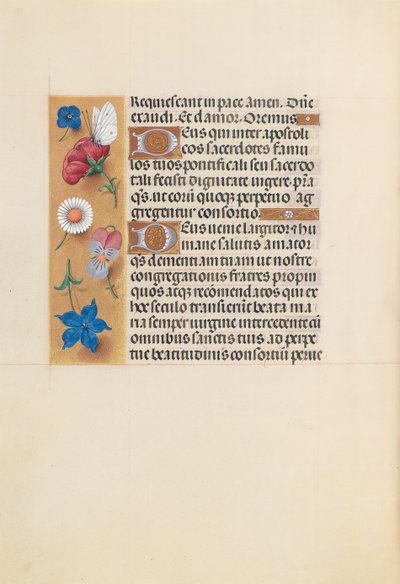 Requiescant in pace Amen. Dñe
exaudi. Et clamor. Oremus
Deus qui inter apostoli
cos sacerdotes famu
los tuos pontificali seu sacerdo
tali fecisti dignitate vigere. pr̄a
q̄s. ut eorū quoqz perpetuo ag
gregentur consortio.
Deus venie largitor ⁊ hu
mane salutis amator
q̄s clementiam tuam ut nostre
congregationis fratres propin
quos atqz recōmendatos qui ex
hoc seculo transierūt beata ma
ria semper virgine intercedente cū
omnibus sanctis tuis ad perpe
tue beatitudinis consortiū perue